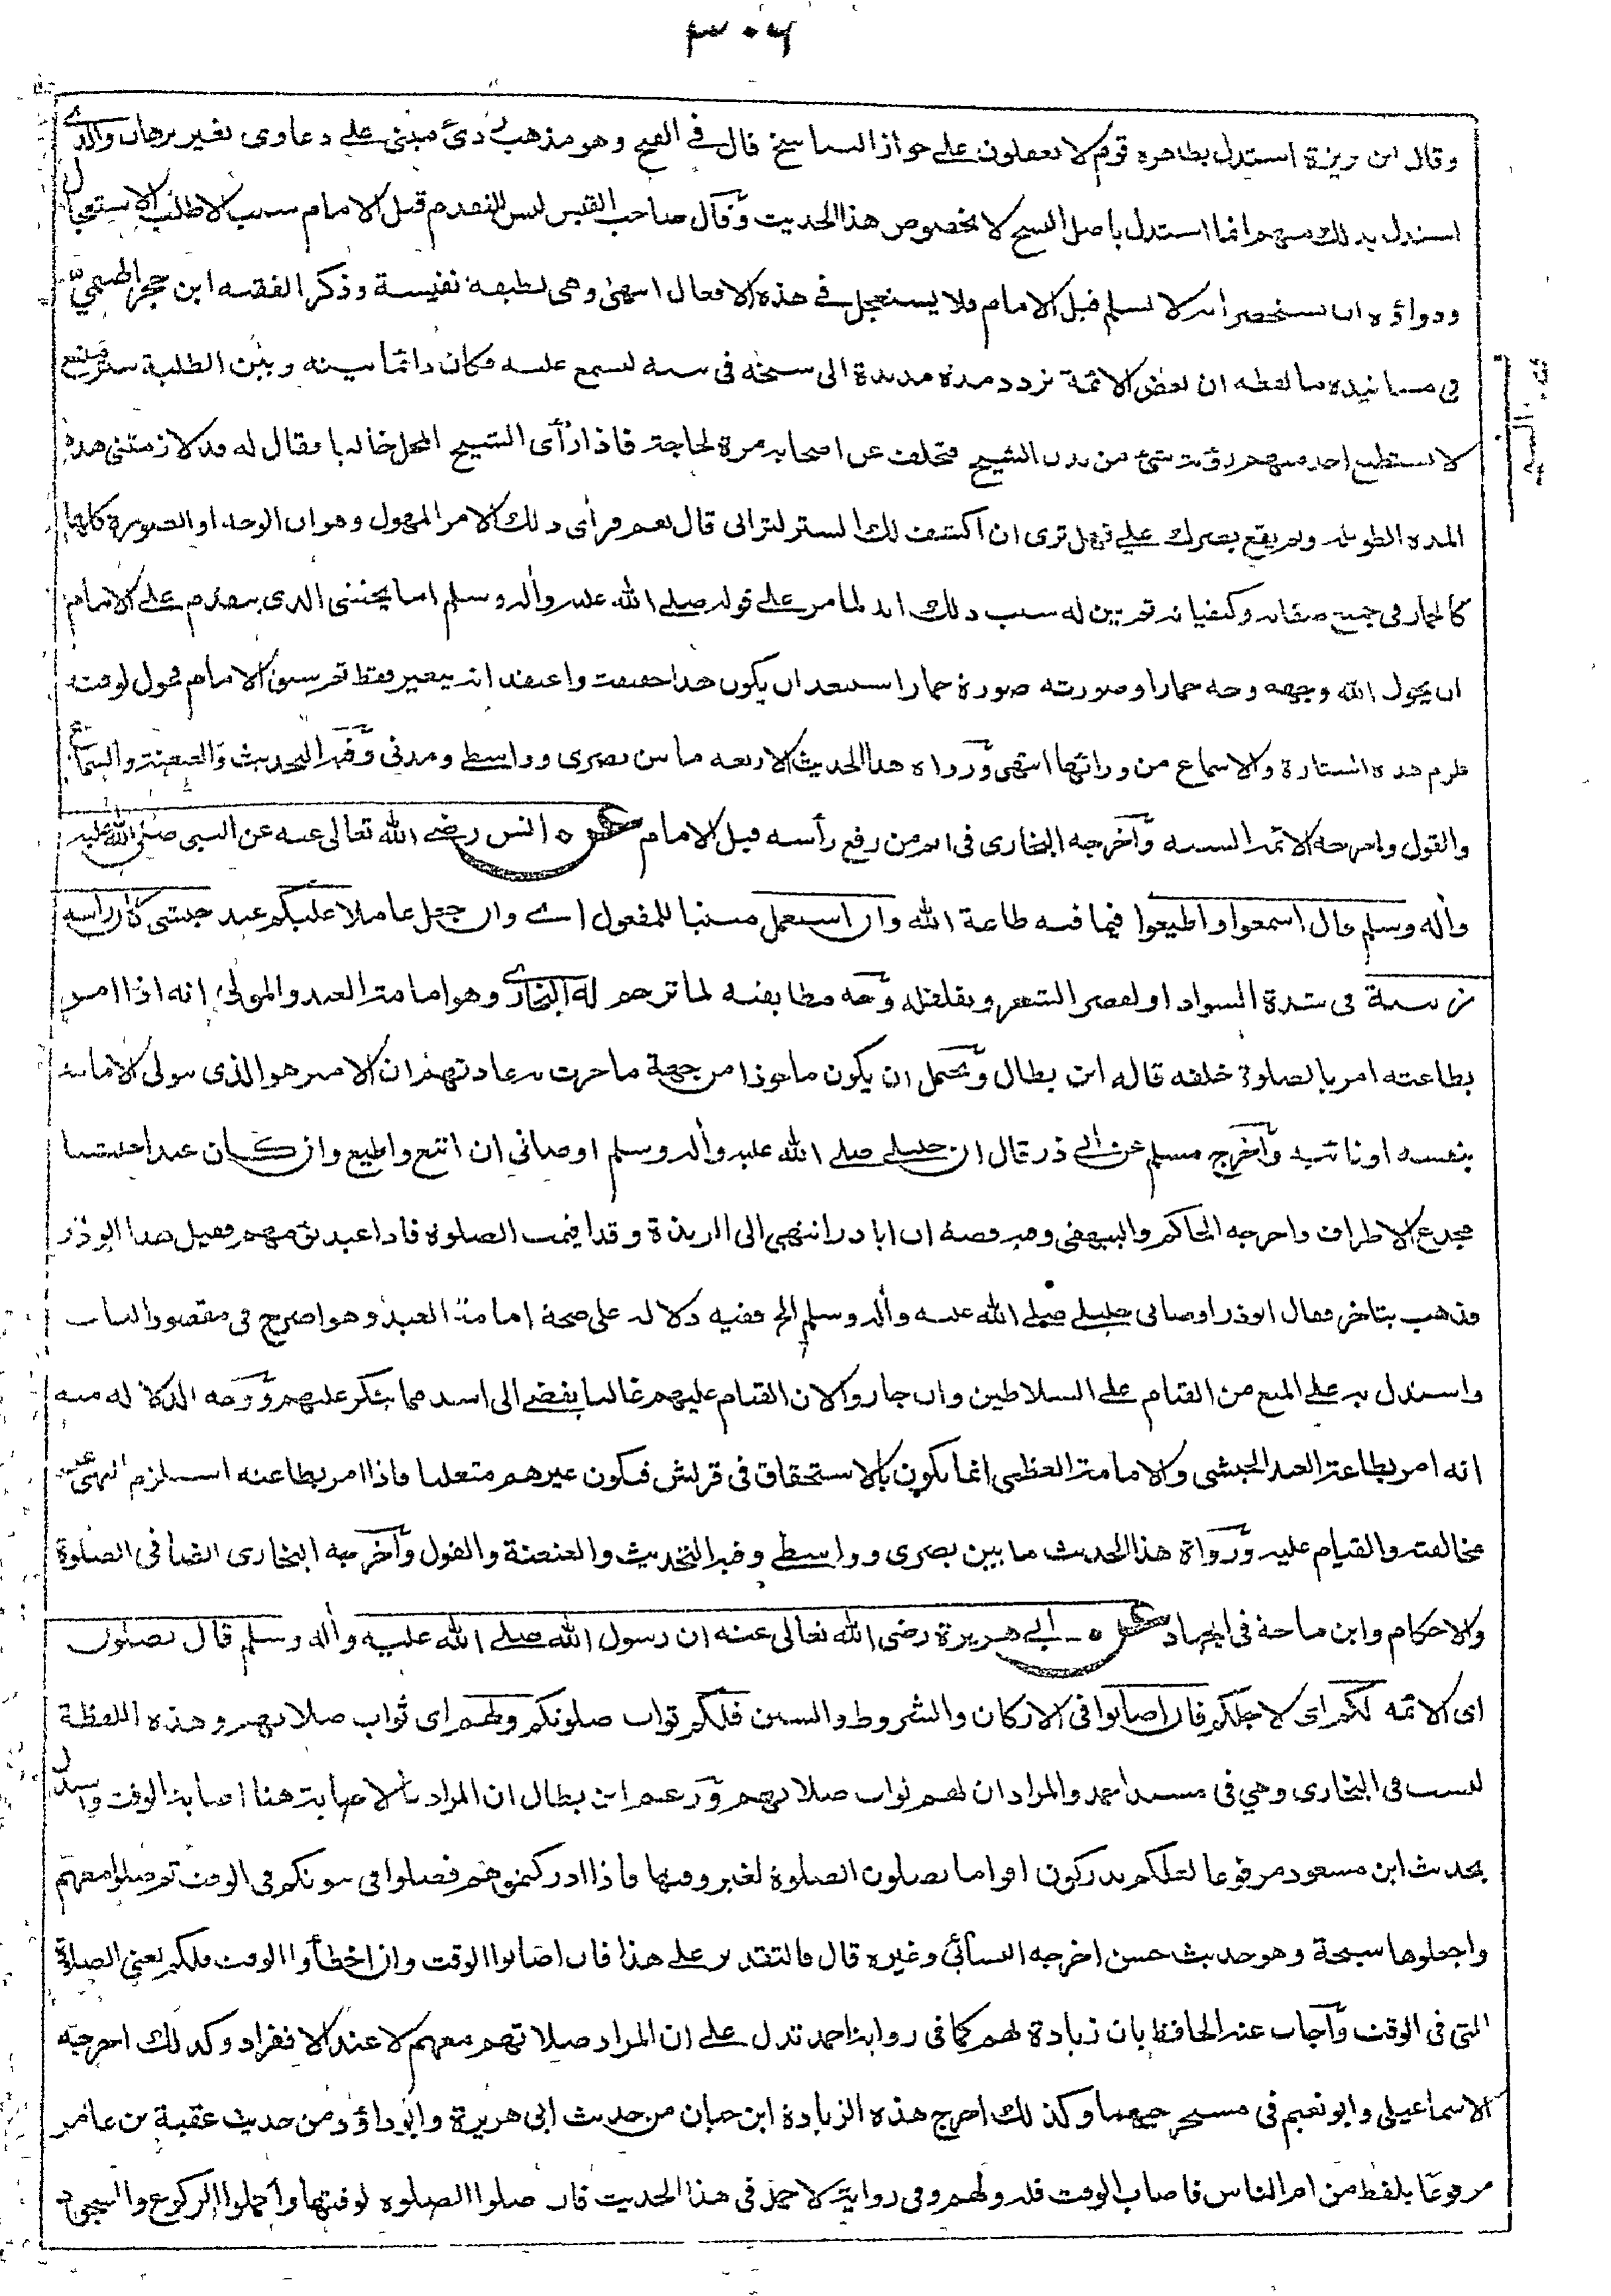 ٣٠٦
وقال ابن بزيزة استدل بظاهره قوم لا يعقلون على جواز التناسخ قال في الفتح وهو مذهب ردئ مبني على دعاوى بغير برهان والذى
استدل بذلك منهم انما استدل باصل النسخ لا بخصوص هذا الحديث وقال صاحب القبس ليس للتقدم قبل الامام سبب الا طلب الاستعجال
ودواؤه ان يستحضر انه لا يسلم قبل الامام فلا يستعجل في هذه الافعال انتهى وهى لطيفة نفيسة وذكر الفقيه ابن حجر الهيتمي
في مسانيده ما لفظه ان بعض الائمة تردد مدة مديدة الى شيخه فى بيته ليسمع عليه فكان دائما بينه وبين الطلبة ستر منيع
لا يستطيع احد منهم رؤية شئ من بدن الشيخ فتخلف عن اصحابه مرة لحاجة فاذا رأى الشيخ المحل خاليا فقال له قد لازمتنى هذه
المدة الطويلة ولم يقع بصرك على فهل ترى ان اكشف لك الستر لترانى قال نعم فرأى ذلك الامر المهول وهو ان الوجه او الصورة كلها
كالحمار في جميع صفاته وكيفياته ثم بين له سبب ذلك انه لما مر على قوله صلى الله عليه وأله وسلم اما يخشى الذى يتقدم على الامام
ان يحول الله وجهه وجه حمار او صورته صورة حمار استبعد ان يكون هذا حقيقت واعتقد انه يتغير فقط ثم سبق الامام فحول لوقته
فلزم هذه الستارة والاسماع من ورائها انتهى ورواه هذا الحديث الاربعة ما بين بصرى وواسطى ومدنى وفيه التحديث والعنعنة والسماع
والقول واخرجه الائمة الستة وأخرجه البخارى فى اثم من رفع رأسه قبل الامام عن انس رضى الله تعالى عنه عن النبى صلى الله عليه
وأله وسلم قال اسمعوا واطيعوا فيما فيه طاعة الله وان استعمل مبنيا للمفعول اى وان جعل عاملا عليكم عبد حبشى كان رأسه
زبيبة فى شدة السواد او لقصر الشعر وتفلفله وجه مطابقته لما ترجم له البخارى وهو امامة العبد والمولى انه اذا امر
بطاعته امر بالصلوة خلفه قاله ابن بطال ويحتمل ان يكون ماخوذا من جهة ما جرت به عادتهم ان الامير هو الذى يتولى الامامة
بنفسه او نائبه وأخرج مسلم عن أبى ذر قال ان خليلى صلى الله عليه وأله وسلم اوصانى ان اسمع واطيع وان كان عبدا حبشيا
مجدع الاطراف واخرجه الحاكم والبيهقى وفيه قصة ان ابا ذر انتهى الى الربذة وقد اقيمت الصلوة فاذا عبد يؤمهم فقيل هذا ابو ذر
فذهب يتاخر فقال ابو ذر اوصانى خليلى صلى الله عليه وأله وسلم الخ ففيه دلالة على صحة امامة العبد وهو اصرح فى مقصود الباب
واستدل به على المنع من القيام على السلاطين وان جاروا لان القيام عليهم غالبا يفضى الى اشد مما ينكر عليهم ووجه الدلالة منه
انه امر بطاعة العبد الحبشى والامامة العظمى انما تكون بالاستحقاق فى قريش فيكون غيرهم متغلبا فاذا امر بطاعته استلزم النهى عن
مخالفته والقيام عليه ورواة هذا الحديث ما بين بصرى وواسطى وفيه التحديث والعنعنة والقول وأخرجه البخارى ايضا فى الصلوة
والاحكام وابن ماجة فى الجهاد عن ابى هريرة رضى الله تعالى عنه ان رسول الله صلى الله عليه وأله وسلم قال يصلون
اى الائمة لكم اى لاجلكم فان اصابوا فى الاركان والشروط والسنن فلكم ثواب صلوتكم ولهم اى ثواب صلاتهم وهذه اللفظة
ليست فى البخارى وهي فى مسند احمد والمراد ان لهم ثواب صلاتهم وزعم ابن بطال ان المراد بالاصابة هنا اصابة الوقت واستدل
بحديث ابن مسعود مرفوعا لعلكم تدركون اقواما يصلون الصلوة لغير وقتها فاذا ادركتموهم فصلوا فى بيوتكم فى الوقت ثم صلوا معهم
واجعلوها سبحة وهو حديث حسن اخرجه النسائى وغيره قال فالتقدير على هذا فان اصابوا الوقت وان اخطأوا الوقت فلكم يعني الصلوة
التى فى الوقت وأجاب عنه الحافظ بان زيادة لهم كما فى رواية احمد تدل على ان المراد صلاتهم معهم لا عند الانفراد وكذلك اخرجه
الاسماعيلى وابو نعيم فى مستخرجيهما وكذلك اخرج هذه الزيادة ابن حبان من حديث ابى هريرة وابو داؤد من حديث عقبة بن عامر
مرفوعا بلفظ من ام الناس فاصاب الوقت فله ولهم وفى رواية لاحمد فى هذا الحديث فان صلوا الصلوة لوقتها وأتموا الركوع والسجود